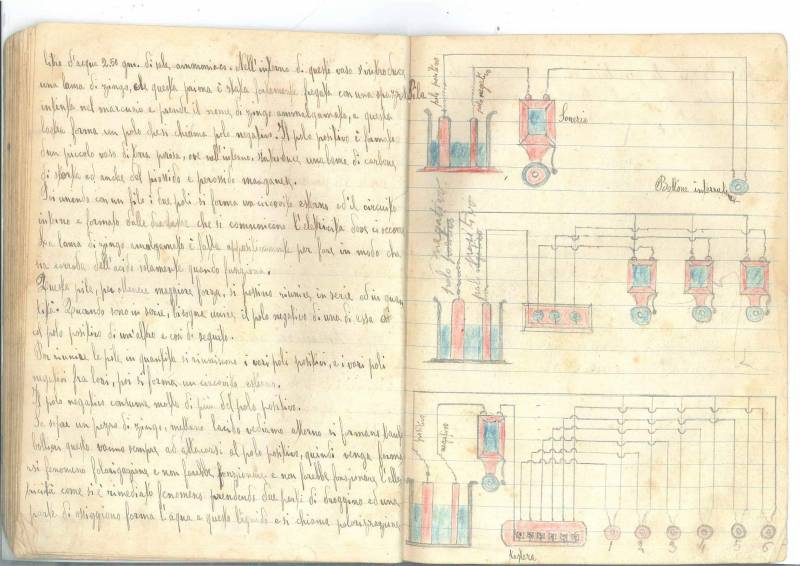 litro d'acqua 250 gm. di sale ammoniaco. Nell'interno di questo vaso s'introduce
una lama di zingo, che questa prima è stata fregata con una
intinta nel mercurio e prende il nome di zingo ammalgamato, e questa
lastra forma un polo che si chiama polo negativo. Il polo positivo è formato
d'un piccolo vaso di terra porosa, ove nell'interno s'introduce una lama di carbone
di storta ed anche del biossido e perossido manganese.
Poi unendo con un filo i due poli si forma un circovito esterno ed il circuito
interno è formato dalle due lastre che si comunicano l'elettricità dove ci occorre.
La lama di zingo amalgamato è fatta appositamente per fare in modo che
sia corrosa dell'acido solamente quando funziona.
Questa pila, per ottenere maggiore forza, si possono riunire, in serie ed in quan
tità. Quando sono in serie, bisogna unire, il polo negativo di una di esse
col polo positivo di un'altra e così di seguito.
Per riunire le pile in quantità si riuniscono i vari poli positivi, e i vari poli
negativi fra loro, poi si forma un circovito esterno.
Il polo negativo consuma molto di più del polo positivo.
Se a un pezzo di zingo, mettiamo l'acido vediamo attorno si formano tante
bollicine questo vanno sempre ad attaccarsi al polo positivo, quindi venga
un fenomeno e non farebbe funzionare e non farebbe funzionare l'elet
tricità come si è rimediato fenomeno prendendo due parti di droggino ed una
parte di ossiggiono forma l'acqua e questo liquido e si chiama polarizzazione
Pila
polo positivo
polo negativo
Soneria
Bottone interruttore
polo negativo
polo positivo
positivo
negativo
1 2 3 4 5 6